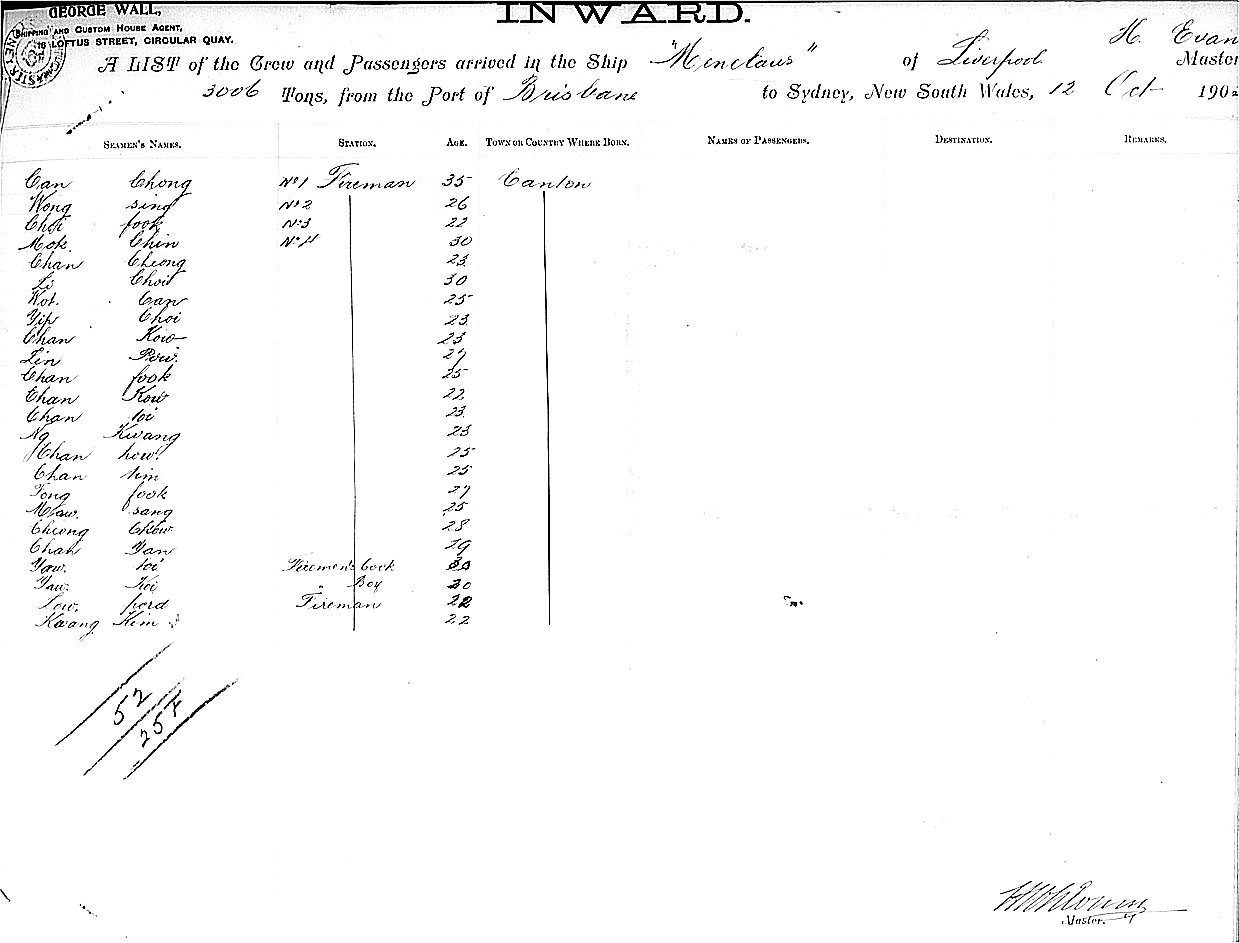 GEORGE WALL,
SHIPPING AND CUSTOM HOUSE AGENT,
16 LOFTUS STREET, CIRCULAR QUAY.
INWARD.
H. Evan
A LIST of the Crew and Passengers arrived in the Ship "Menelaus" of Liverpool Master
3006 Tons, from the Port of Brisbane to Sydney, New South Wales, 12 Oct 190
SEAMEN'S NAMES. STATION. AGE. TOWN OR COUNTRY WHERE BORN. NAMES OF PASSENGERS. DESTINATION. REMARKS.
Can Chong No 1 Fireman 35 Canton
Wong sing No 2 26
Choi fook No 3 22
Mok. Chin No 4 30
Chan Cheong 23
Li Choi 30
Kot. Can 25
Yip Choi 23
Chan Kow 23
Lin 27
Chan fook 25
Chan Kow 22
Chan toi 23
Ng Kwang 23
Chan how. 25
Chan tim 25
Tong fook 27
Maw. sang 25
Cheong Chow 28
Chan Yan 29
Yaw. toi Firemen's Cook 30
Yaw. Koi " Boy 30
Low. Fireman 22
Kwang Kim 22
52
257
Master.